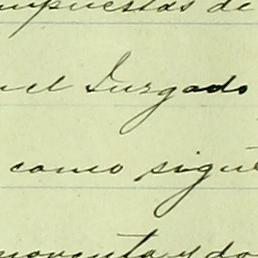 mpuestas de
el Juzgado
como sigue
noventa y do